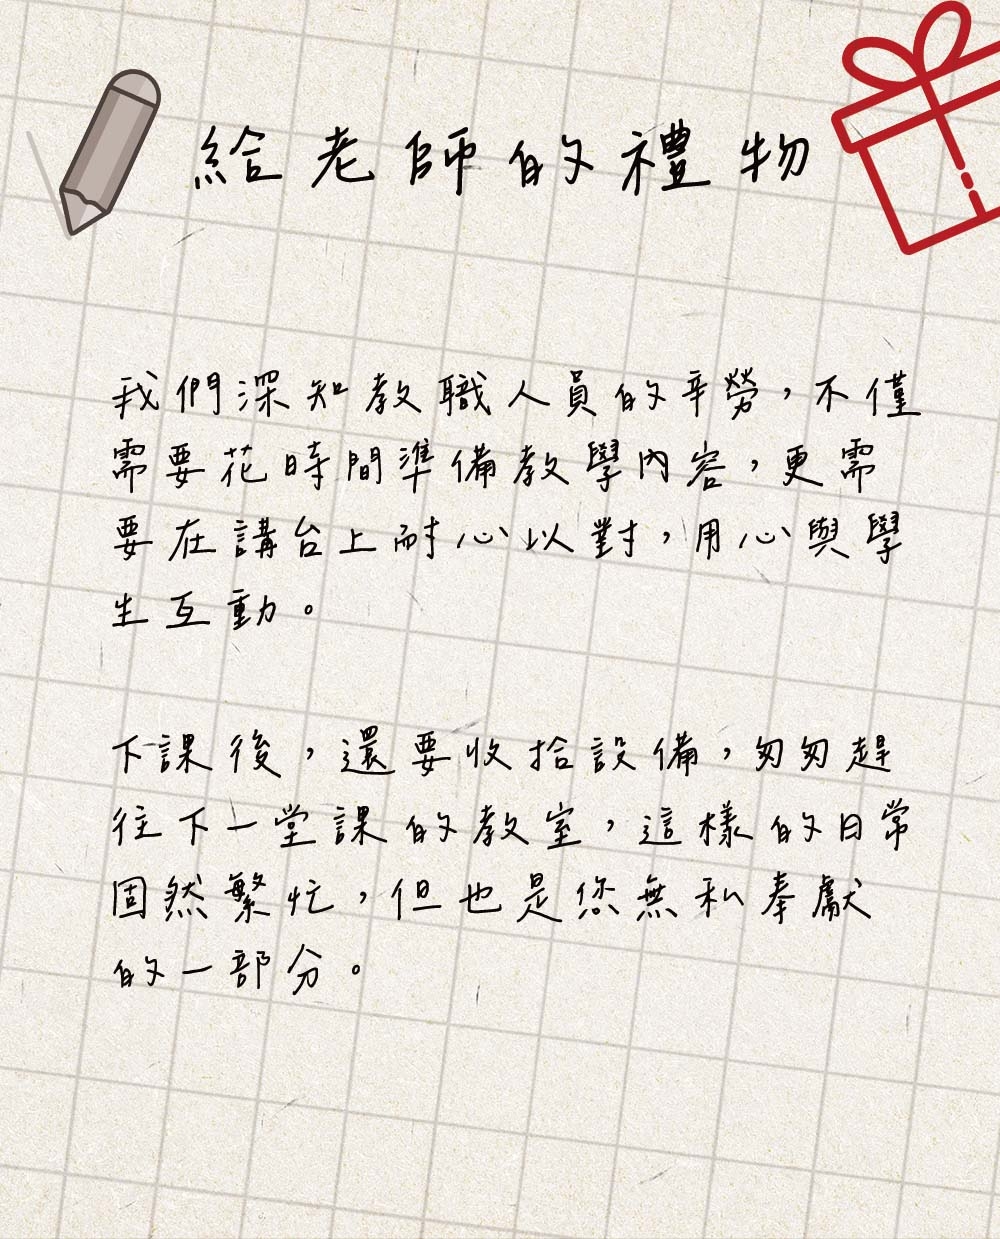 給老師的禮物
我們深知教職人員的辛勞，不僅
需要花時間準備教學內容，更需
要在講台上耐心以對，用心與學
生互動。
下課後，還要收拾設備，匆匆趕
往下一堂課的教室，這樣的日常
固然繁忙，但也是您無私奉獻
的一部分。